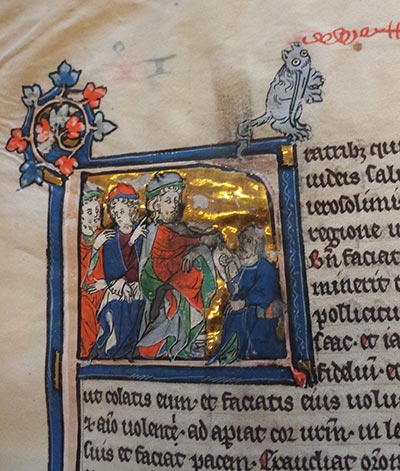 ratribꝫ qui
iudeis salu
ierosolimis
regione iu
bn̄ faciat
minerit t
pollicitu
saac. et ia
fideliū. et
ut colatis eum. et faciatis eius volu
⁊ aīo volenti. ad apiat cor urm̄. in le
suis et faciat pacem. Exaudiat